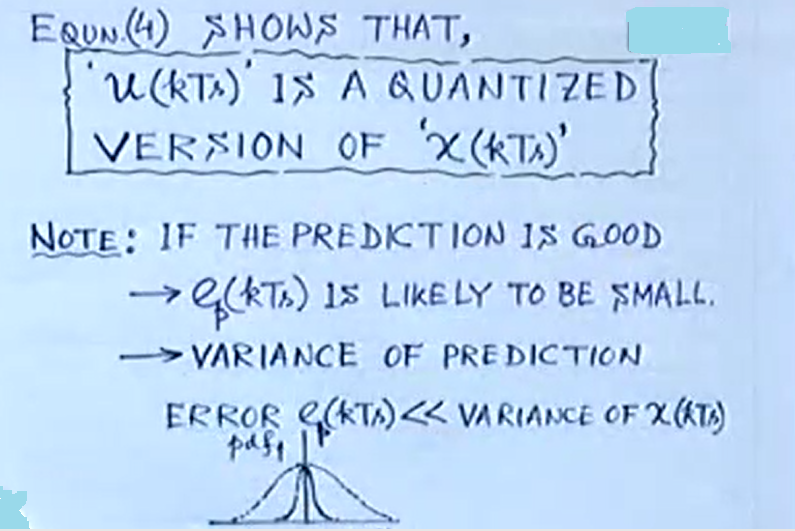 EQUN.(4) SHOWS THAT,
'u(kTs)' IS A QUANTIZED
VERSION OF 'x(kTs)'
NOTE: IF THE PREDICTION IS GOOD
→ ep(kTs) IS LIKELY TO BE SMALL.
→ VARIANCE OF PREDICTION
ERROR ep(kTs) << VARIANCE OF x(kTs)
pdf